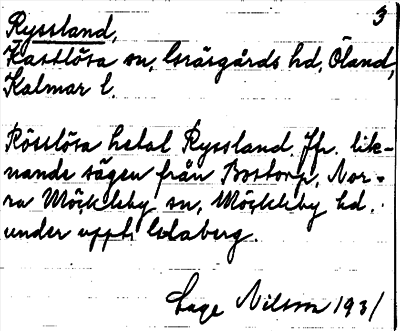 3
Ryssland,
Kastlösa sn, Gräsgårds hd, Öland,
Kalmar l.
Rösslösa hetat Ryssland. Jfr. lik-
nande sägen från Bostorp, Nor-
ra Möckleby sn, Möckleby hd.
under uppt.
Lage Nilsson 1931